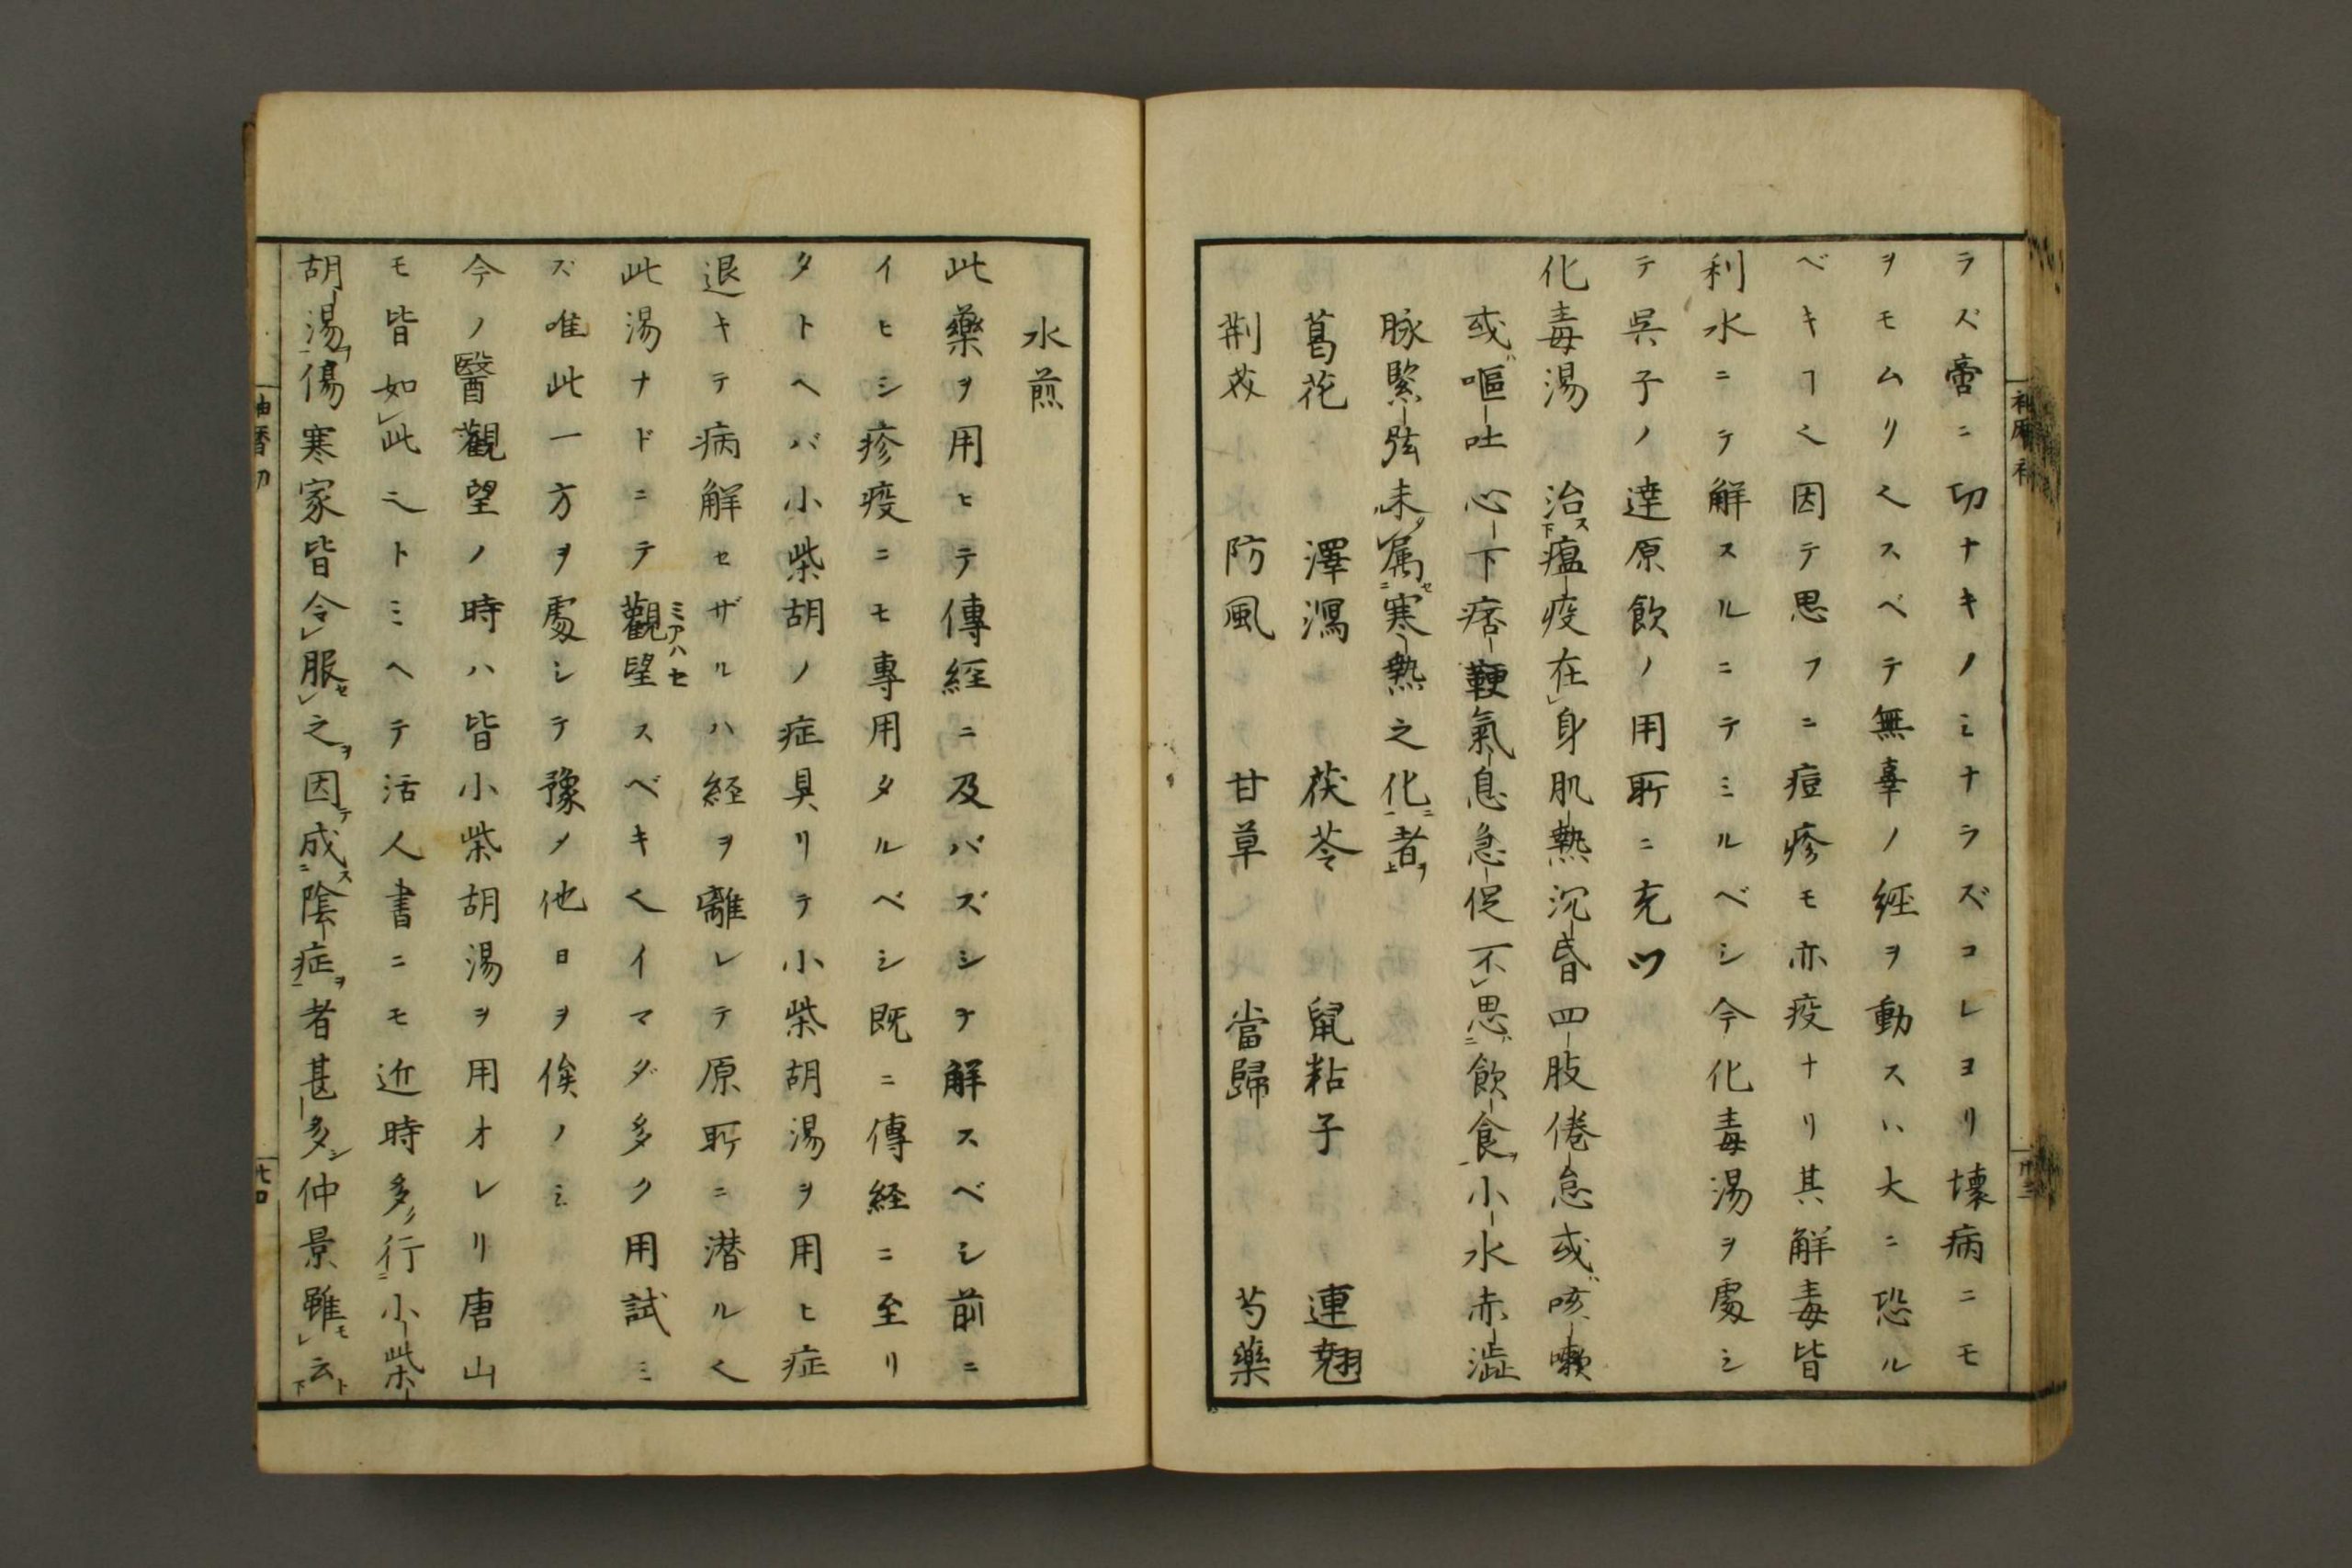 ラズ啻ニ功ナキノミナラズコレヨリ壊病ニモ
ヲモムリ也スベテ無辜ノ経ヲ動スハ大ニ恐ル
ベキヿ也因テ思フニ痘疹モ亦疫ナリ其解毒皆
利水ニテ解スルニテミルベシ今化毒湯ヲ処シ
テ呉子ノ達原飲ノ用所ニ充ツ
化毒湯 治瘟疫在身肌熱沉昏四肢倦怠或咳嗽
或嘔吐心下痞鞕氣息急促不思飲食小水赤澁
脉緊弦未属寒熱之化者
葛花 澤瀉 茯苓 鼠粘子 連翹
荆芥 防風 甘草 當歸 芍藥
水煎
此藥ヲ用ヒテ傳経ニ及バズシテ解スベシ前ニ
イヒシ疹疫ニモ專用タルベシ既ニ傳経ニ至リ
タトヘバ小柴胡ノ症具リテ小柴胡湯ヲ用ヒ症
退キテ病解セザルハ経ヲ離レテ原所ニ潜ル也
此湯ナドニテ觀望スベキ也イマダ多ク用試ミ
ミアハセ
ズ唯此一方ヲ処シテ豫メ他日ヲ俟ノミ
今ノ醫觀望ノ時ハ皆小柴胡湯ヲ用オレリ唐山
モ皆如此ミトミヘテ活人書ニモ近時多行小柴
胡湯傷寒家皆令服之因成陰症者甚多仲景雖云